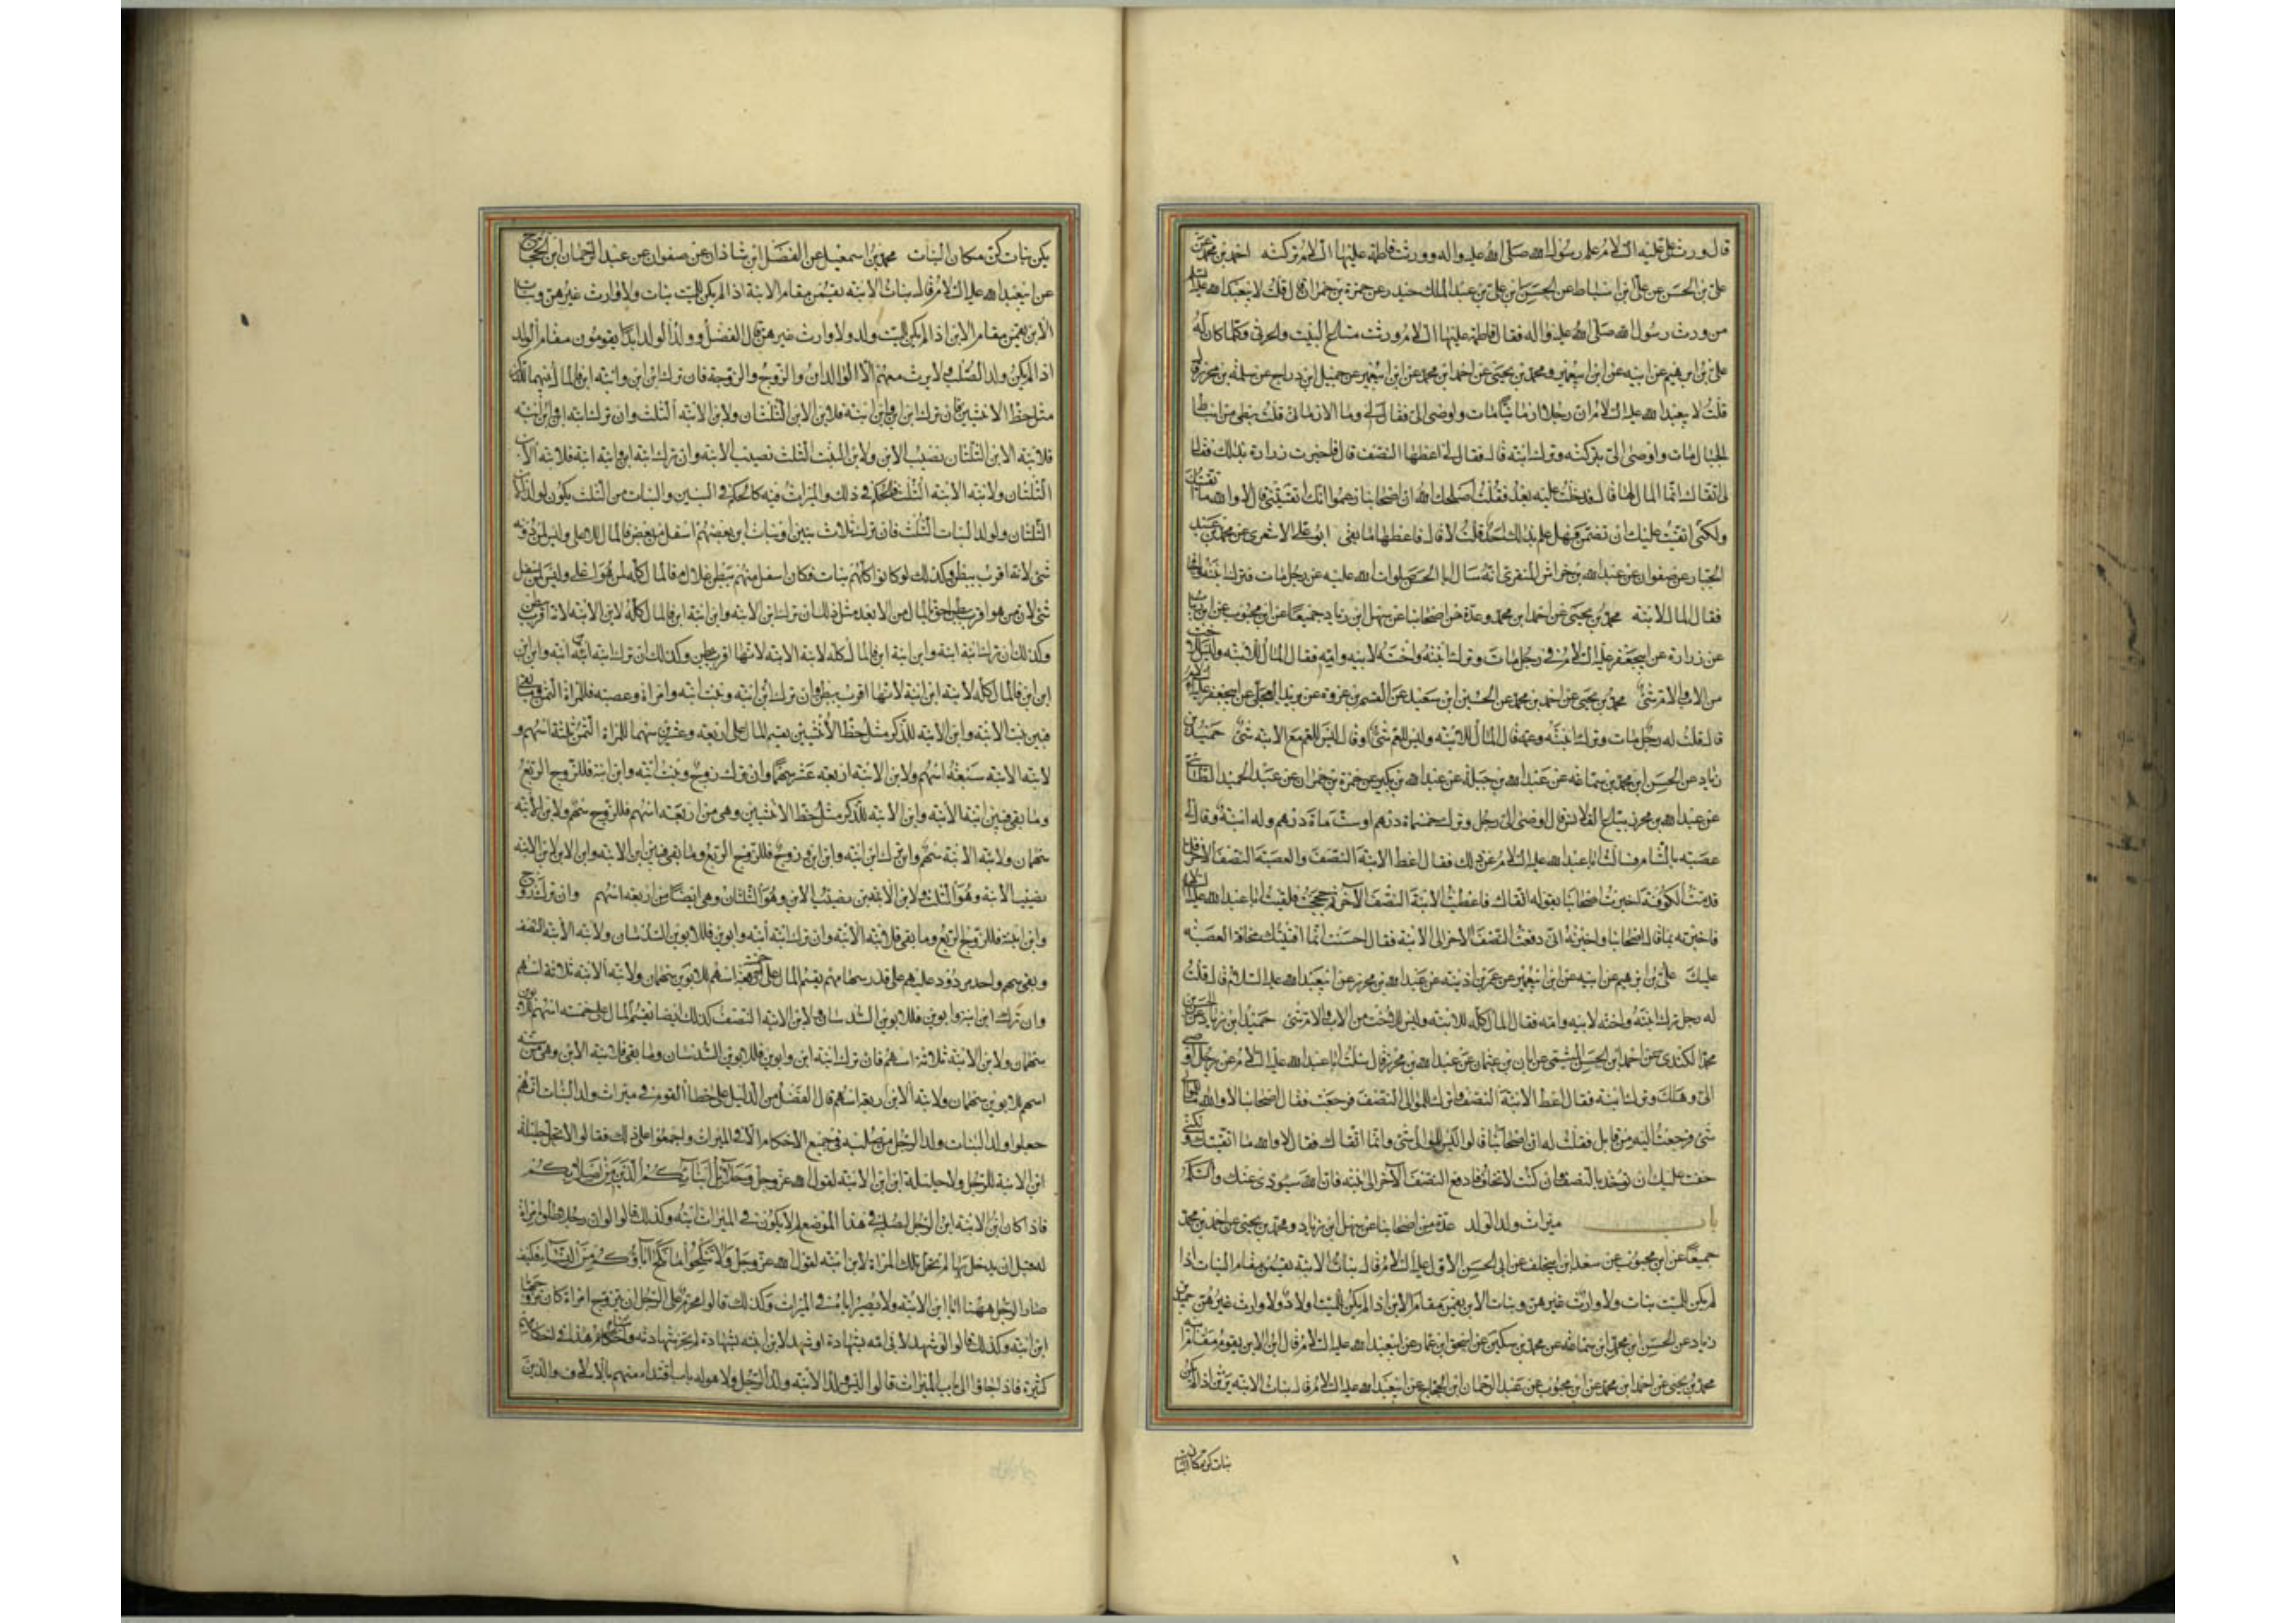 قال ورث علي عليه السلام علم رسول الله صلى الله عليه واله وورثت فاطمة عليها السلام تركته احمد بن محمد عن
علي بن الحسن عن علي ابن اسباط عن الحسن ابن علي بن عبد الملك حيدر عن حمزة بن حمران قال قلت لابيعبد الله عليه السلام
من ورث رسول الله صلى الله عليه واله فقال فاطمة عليها السلام ورثت متاع البيت والخرثي وكلما كان له
علي بن ابرهيم عن ابيه عن ابن ابيعمير ومحمد بن يحيى عن احمد ابن محمد عن ابن ابيعمير عن جميل ابن دراج عن سلمة بن محرز قال
قلت لابيعبد الله عليه السلام ان رجلا ارمانيا مات واوصى الي فقال لي وما الارماني قلت نبطي من انباط
الجبال مات واوصى الي بتركته وترك ابنته قال فقال لي اعطها النصف قال فاخبرت زرارة بذلك فقال
لي اتقاك انما المال لها قال فدخلت عليه بعد فقلت اصلحك الله ان اصحابنا زعموا انك اتقيتني فقال لا والله ما اتقيتك
ولكني اتقيت عليك ان تضمن فهل علم بذلك احد قلت لا قال فاعطها ما بقي ابو علي الاشعري عن محمد بن عبد
الجبار عن صفوان عن عبد الله بن خراش المنقري انه سال ابا الحسن صلوات الله عليه عن رجل مات وترك ابنته واخاه
فقال المال للابنة محمد بن يحيى عن احمد ابن محمد وعدة من اصحابنا عن سهل ابن زياد جميعا عن ابن محبوب عن ابن رئاب
عن زرارة عن ابيجعفر عليه السلام في رجل مات وترك ابنته واخته لابيه وامه فقال المال للابنة وليس للاخت
من الاب والام شئ محمد بن يحيى عن احمد بن محمد عن الحسين ابن سعيد عن القسم بن عروة عن بريد العجلي عن ابيجعفر عليه السلام
قال قلت له رجل مات وترك ابنته وعمه قال المال للابنة وليس للعم شئ او قال ليس للعم مع الابنة شئ حميد بن
زياد عن الحسن ابن محمد بن سماعه عن عبد الله بن جبلة عن عبد الله بن بكير عن حمزة بن حمران عن عبد الحميد الطائي
عن عبد الله بن محرز بياع القلانس قال اوصى الي رجل وترك خمسمائة درهم او ستمائة درهم وله ابنة وقال لي
عصبة بالشام فسالت ابا عبد الله عليه السلام عن ذلك فقال اعط الابنة النصف والعصبة النصف الاخر فلما
قدمت الكوفة اخبرت اصحابنا بقوله اتقاك فاعطيت الابنة النصف الاخر ثم حججت فلقيت ابا عبد الله عليه السلام
فاخبرته بما قال اصحابنا واخبرته اني دفعت النصف الاخر الى الابنة فقال احسنت انما افتيتك مخافة العصبة
عليك علي بن ابرهيم عن ابيه عن ابن ابيعمير عن عمر بن اذينة عن عبد الله بن محرز عن ابيعبد الله عليه السلام قال قلت
له رجل ترك ابنته واخته لابيه وامه فقال المال كله للابنة وليس للاخت من الاب والام شئ حميد ابن زياد عن الحسن بن
محمد الكندي عن احمد ابن الحسن الميثمي عن ابان بن عثمان عن عبد الله بن محرز قال سئلت ابا عبد الله عليه السلام عن رجل اوصى
الي وهلك وترك ابنة فقال اعط الابنة النصف واترك للموالي النصف فرجعت فقال اصحابنا لا والله ما للموالي
شئ فرجعت اليه من قابل فقلت له ان اصحابنا قالوا ليس للموالي شئ وانما اتقاك فقال لا والله ما اتقيتك ولكني
خفت عليك ان توخذ بالنصف فان كنت لا تخاف فادفع النصف الاخر الى ابنته فان الله سيودي عنك والسلم
باب ميراث ولد الولد عدة من اصحابنا عن سهل ابن زياد ومحمد بن يحيى عن احمد بن محمد
جميعا عن ابن محبوب عن سعد ابن ابيخلف عن ابي الحسن الاول عليه السلام قال بنات الابنة يقمن مقام البنات اذا
لم يكن للميت بنات ولا وارث غيرهن وبنات الابن يقمن مقام الابن اذا لم يكن للميت اولاد ولا وارث غيرهن حميد بن
زياد عن الحسن ابن محمد ابن سماعه عن محمد بن سكين عن اسحق ابن عمار عن ابيعبد الله عليه السلام قال ابن الابن يقوم مقام ابيه
محمد بن يحيى عن احمد ابن محمد عن ابن محبوب عن عبد الرحمان ابن الحجاج عن ابيعبد الله عليه السلام قال بنات الابنة يرثن اذا لم يكن
بنات كن مكان البنات
يكن بنات كن مكان البنات محمد بن اسمعيل عن الفضل ابن شاذان عن صفوان عن عبد الرحمان ابن الحجاج
عن ابيعبد الله عليه السلام قال بنات الابنه يقمن مقام الابنة اذا لم يكن للميت بنات ولا وارث غيرهن وبنات
الابن يقمن مقام الابن اذا لم يكن للميت ولد ولا وارث غيرهن قال الفضل وولد الولد ابدا يقومون مقام الولد
اذا لم يكن ولد الصلب ولا يرث معهم الا الوالدان والزوج والزوجة فان ترك ابن ابن وابنة ابن فالمال بينهما للذكر
مثل حظ الانثيين فان ترك ابن ابن وابن ابنة فلابن الابن الثلثان ولابن الابنة الثلث وان ترك ابنة ابن وابن ابنة
فلابنة الابن الثلثان نصيب الابن ولابن البنت الثلث نصيب الابنة وان ترك ابنة ابن وابنة ابنة فلابنة الابن
الثلثان ولابنة الابنة الثلث فالحكم في ذلك والميراث فيه كالحكم في البنين والبنات من الثلث يكون لولد الابن
الثلثان ولولد البنات الثلث فان ترك ثلاث بنين او بنات ابن بعضهم اسفل من بعض فالمال للاعلى وليس لمن دونه
شئ لانه اقرب ببطن وكذلك لو كانوا كلهم بنات فكان اسفل منهم ببطن غلام فالمال كله لمن هو اعلى وليس لمن سفل
شئ لان من هو اقرب ببطن احق بالمال من الابعد مثل ذلك ان ترك ابن الابنه وابن ابنة ابن فالمال كله لابن الابنه لانه اقرب ببطن
وكذلك ان ترك ابنة ابنة وابن ابنة ابن فالمال كله لابنة الابنه لانها اقرب ببطن وكذلك ان ترك ابنة ابنة ابنه وابن ابن
ابن ابن فالمال كله لابنة ابن ابنة لانها اقرب ببطن وان ترك ابن ابنه وبنت ابنه وامراة وعصبة فللمراة الثمن وما بقي
فبين بنت الابنة وابن الابنة للذكر مثل حظ الانثيين يقسم المال على اربعة وعشرين سهما للمراة الثمن ثلثة اسهم و
لابنة الابنة سبعة اسهم ولابن الابنة اربعة عشر سهما وان ترك زوج وبنت ابنه وابن ابنة فللزوج الربع
وما بقي فبين ابنة الابنة وابن الابنه للذكر مثل حظ الانثيين وهي من اربعة اسهم فللزوج سهم ولابن الابنة
سهمان ولابنة الابنة سهم وان ترك ابن ابنه وابن ابن وزوج فللزوج الربع وما بقي فبين ابن الابنة وابن الابن لابن الابنة
نصيب الابنه وهو الثلث ولابن الابن نصيب الابن وهو الثلثان وهي ايضا من اربعة اسهم وان ترك زوج
وابن ابنة فللزوج الربع وما بقي فلابنة الابنة وان ترك ابنة ابنه وابوين فللابوين السدسان ولابنة الابنة النصف
وبقي سهم واحد مردود عليهم على قدر سهامهم يقسم المال على خمسة اسهم للابوين سهمان ولابنة الابنة ثلاثة اسهم
وان ترك ابن ابنة وابوين فللابوين السدسان ولابن الابنة النصف كذلك ايضا يقسم المال على خمسة اسهم للابوين
سهمان ولابن الابنة ثلاثة اسهم فان ترك ابنة ابن وابوين فللابوين السدسان وما بقي فلابنة الابن وهي من ستة
اسهم للابوين سهمان ولابنة الابن اربعة اسهم قال الفضل من الدليل على خطا القوم في ميراث ولد البنات انهم
جعلوا ولد البنات ولد الرجل من صلبه في جميع الاحكام الا في الميراث واجمعوا على ذلك فقالوا لا تحل حليلة
ابن الابنة للرجل ولا حليلة ابن ابن الابنة لقول الله عز وجل وحلائل ابنائكم الذين من اصلابكم
فاذا كان ابن الابنة ابن الرجل لصلبه في هذا الموضع لم لا يكون في الميراث ابنه وكذلك قالوا لو ان رجلا طلق امراة
له قبل ان يدخل بها لم تحل تلك المراة لابن ابنته لقول الله عز وجل ولا تنكحوا ما نكح اباؤكم من النساء فكيف
صار الرجل ههنا ابا ابن الابنه ولا يصير اباه في الميراث وكذلك قالوا محرم على الرجل ان يتزوج امراة كان تزوجها
ابن ابنته وكذلك قالوا لو شهد لابي امه بشهادة او شهد لابن ابنته بشهادة لم تجز شهادته واحكام هذا في احكام
كثيرة فاذا جاؤا الى باب الميراث قالوا ليس ولد الابنه ولد الرجل ولا هو له باب اقتداء منهم بالاسلاف والذين